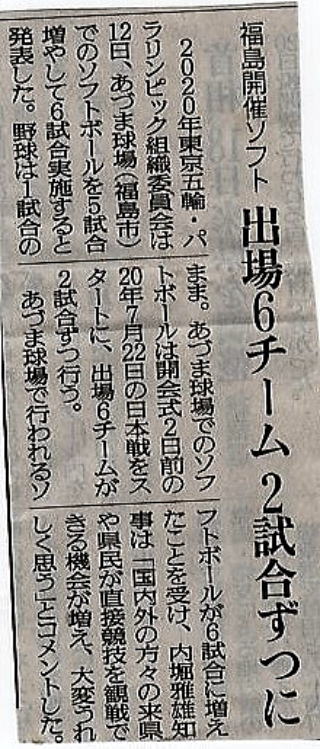 福島開催ソフト
出場6チーム 2試合ずつに
2020年東京五輪・パ
ラリンピック組織委員会は
12日、あづま球場(福島市)
でのソフトボールを5試合
増やして6試合実施すると
発表した。野球は1試合の
まま。あづま球場でのソフ
トボールは開会式2日前の
20年7月22日の日本戦をス
タートに、出場6チームが
2試合ずつ行う。
あづま球場で行われるソ
フトボールが6試合に増え
たことを受け、内堀雅雄知
事は「国内外の方々の来県
や県民が直接競技を観戦で
きる機会が増え、大変うれ
しく思う」とコメントした。